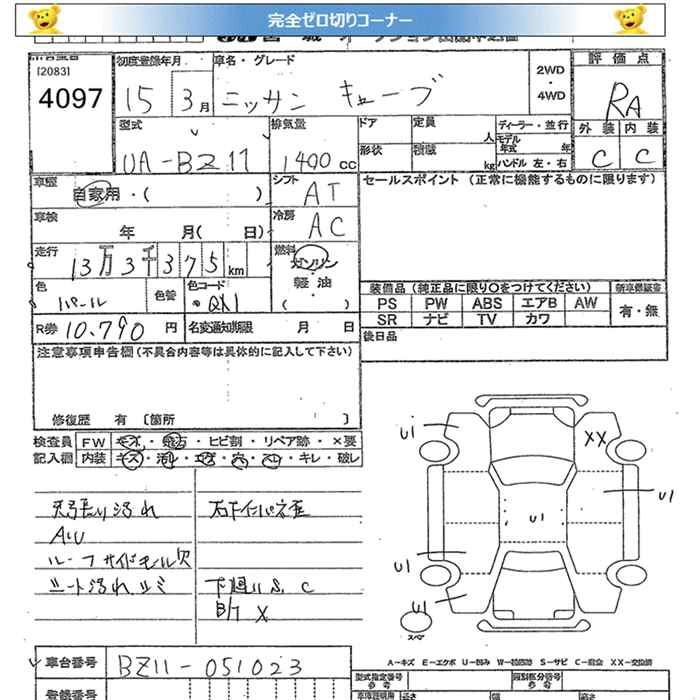 完全ゼロ切りコーナー
[2083]
4097
初度登録年月
15 3月
車名・グレード
ニッサン キューブ
2WD
・
4WD
評価点
RA
外装 内装
C C
型式
UA-BZ11
排気量
1400 CC
ドア
定員
人
形状
積載
kg
ディーラー・並行
モデル年式 年
ハンドル 左・右
車歴
自家用・( )
シフト
AT
セールスポイント (正常に機能するものに限ります)
車検
年 月( 日)
冷房
AC
走行
13万3千375km
燃料
ガソリン
軽油
( )
色
パール
色替
色コード
QX1
装備品 (純正品に限り○をつけてください)
新車保証書
PS PW ABS エアB AW
有・無
SR ナビ TV カワ
R券 10,790 円
名変通知期限 月 日
後日品
注意事項申告欄(不具合内容等は具体的に記入して下さい)
修復歴 有 〔箇所 〕
検査員
記入欄
FW キズ・飛石・ヒビ割・リペア跡・×要
内装 キズ・汚れ・コゲ・穴・スレ・キレ・破レ
天張り汚れ
AU
ルーフサイドモール欠
シート汚れ シミ
下廻りS、C
X
U1
XX
U1
U1
U1
U1
スペア
A-キズ E-エクボ U-凹み W-補修跡 S-サビ C-腐食 XX-交換済
車台番号
BZ11-051023
登録番号
型式指定番号
参考
類別区分番号
参考
車庫証明用
長さ
幅
高さ